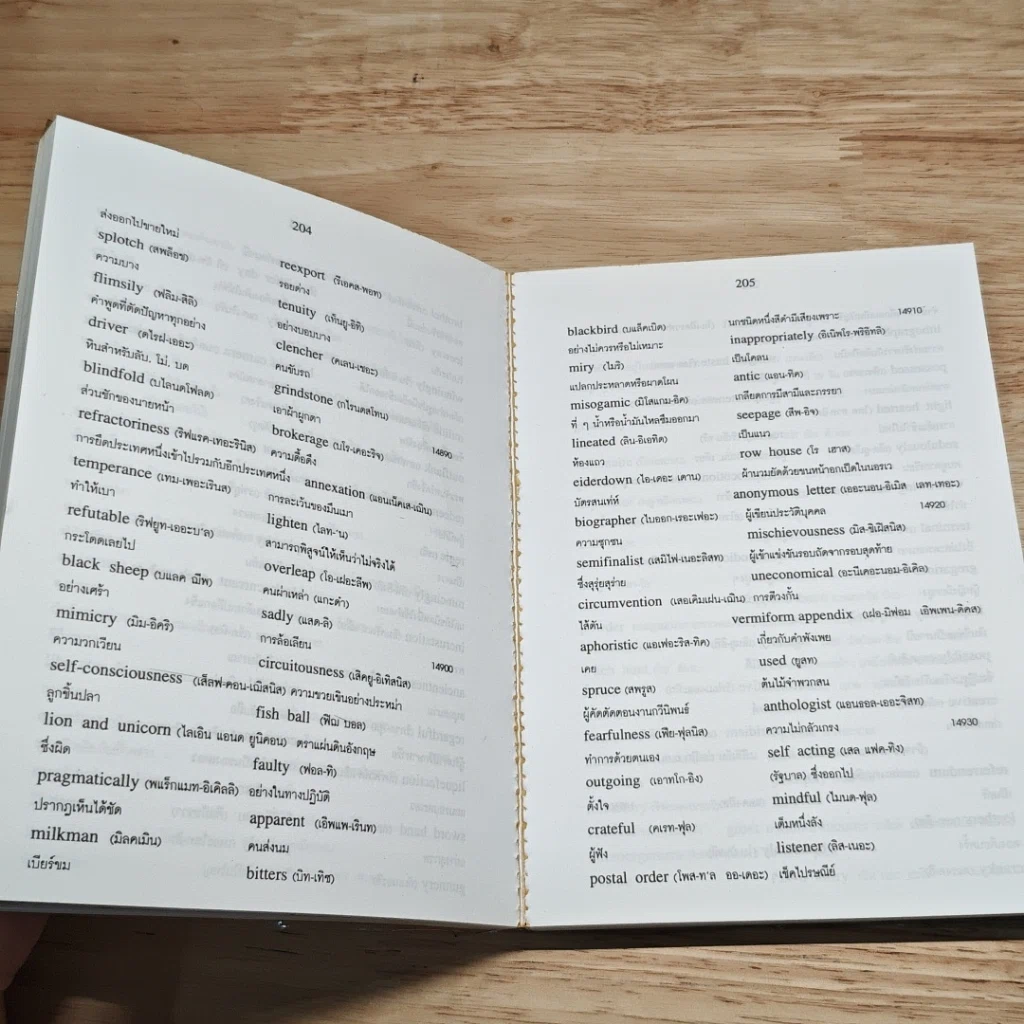 204
ส่งออกไปขายใหม่ reexport (รีเอคส-พอท)
splotch (สพล็อช) รอยด่าง
ความบาง tenuity (เท็นยู-อิทิ)
flimsily (ฟลิม-สิลิ) อย่างบอบบาง
คำพูดที่ตัดปัญหาทุกอย่าง clencher (คเลน-เชอะ)
driver (ดไรฝ-เออะ) คนขับรถ
หินสำหรับลับ, โม่, บด grindstone (กไรนดสโทน)
blindfold (บไลนดโฟลด) เอาผ้าผูกตา
ส่วนชักของนายหน้า brokerage (บโร-เคอะริจ)
refractoriness (ริฟแรค-เทอะรินิส) ความดื้อดึง 14890
การยึดประเทศหนึ่งเข้าไปรวมกับอีกประเทศหนึ่ง annexation (แอนเน็คเส-เฌิน)
temperance (เทม-เพอะเรินส) การละเว้นของมึนเมา
ทำให้เบา lighten (ไลท-'น)
refutable (ริฟยูท-เออะบ'ล) สามารถพิสูจน์ให้เห็นว่าไม่จริงได้
กระโดดเลยไป overleap (โอ-เฝอะลีพ)
black sheep (บแลค ฌีพ) คนผ่าเหล่า (แกะดำ)
อย่างเศร้า sadly (แสด-ลิ)
mimicry (มิม-อิคริ) การล้อเลียน
ความวกเวียน circuitousness (เสิคยู-อิเทิสนิส) 14900
self-consciousness (เส็ลฟ-คอน-เฌิสนิส) ความขวยเขินอย่างประหม่า
ลูกชิ้นปลา fish ball (ฟิฌ บอล)
lion and unicorn (ไลเอิน แอนด ยูนิคอน) ตราแผ่นดินอังกฤษ
ซึ่งผิด faulty (ฟอล-ทิ)
pragmatically (พแร็กแมท-อิเคิลลิ) อย่างในทางปฏิบัติ
ปรากฏเห็นได้ชัด apparent (เอิพแพ-เรินท)
milkman (มิลคเมิน) คนส่งนม
เบียร์ขม bitters (บิท-เทิซ)
205
blackbird (บแล็คเบิด) นกชนิดหนึ่งสีดำมีเสียงเพราะ 14910
อย่างไม่ควรหรือไม่เหมาะ inappropriately (อิเนิพโร-พริอิทลิ)
miry (ไมริ) เป็นโคลน
แปลกประหลาดหรือผาดโผน antic (แอน-ทิค)
misogamic (มิโสแกม-อิค) เกลียดการมีสามีและภรรยา
ที่ ๆ น้ำหรือน้ำมันไหลซึมออกมา seepage (สีพ-อิจ)
lineated (ลิน-อิเอทิด) เป็นแนว
ห้องแถว row house (โร เฮาส)
eiderdown (ไอ-เดอะ ดาน) ผ้านวมยัดด้วยขนหน้าอกเป็ดในนอรเว
บัตรสนเท่ห์ anonymous letter (เออะนอน-อิเมิส เลท-เทอะ)
biographer (ไบออก-เรอะเฟอะ) ผู้เขียนประวัติบุคคล 14920
ความซุกซน mischievousness (มิส-ชิเฝิสนิส)
semifinalist (เสมิไฟ-เนอะลิสท) ผู้เข้าแข่งขันรอบถัดจากรอบสุดท้าย
ซึ่งสุรุ่ยสุร่าย uneconomical (อะนีเคอะนอม-อิเคิล)
circumvention (เสอเคิมเฝน-เฌิน) การตีวงกัน
ไส้ตัน vermiform appendix (เฝอ-มิฟอม เอิพเพน-ดิคส)
aphoristic (แอเฟอะริส-ทิค) เกี่ยวกับคำพังเพย
เคย used (ยูสท)
spruce (สพรูส) ต้นไม้จำพวกสน
ผู้คัดตัดตอนงานกวีนิพนธ์ anthologist (แอนธอล-เออะจิสท)
fearfulness (เฟีย-ฟุลนิส) ความไม่กล้าเกรง 14930
ทำการด้วยตนเอง self acting (เสล แฟค-ทิง)
outgoing (เอาทโก-อิง) (รัฐบาล) ซึ่งออกไป
ตั้งใจ mindful (ไมนด-ฟุล)
crateful (คเรท-ฟุล) เต็มหนึ่งลัง
ผู้ฟัง listener (ลิส-เนอะ)
postal order (โพส-ท'ล ออ-เดอะ) เช็คไปรษณีย์